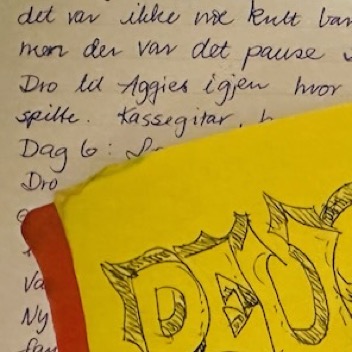 det var ikke noe kult bar
men der var det pause
Dro til Aggies igjen hvor
spilte. Kassegitar,
Dag 6:
Dro
Va
Ny
DAG